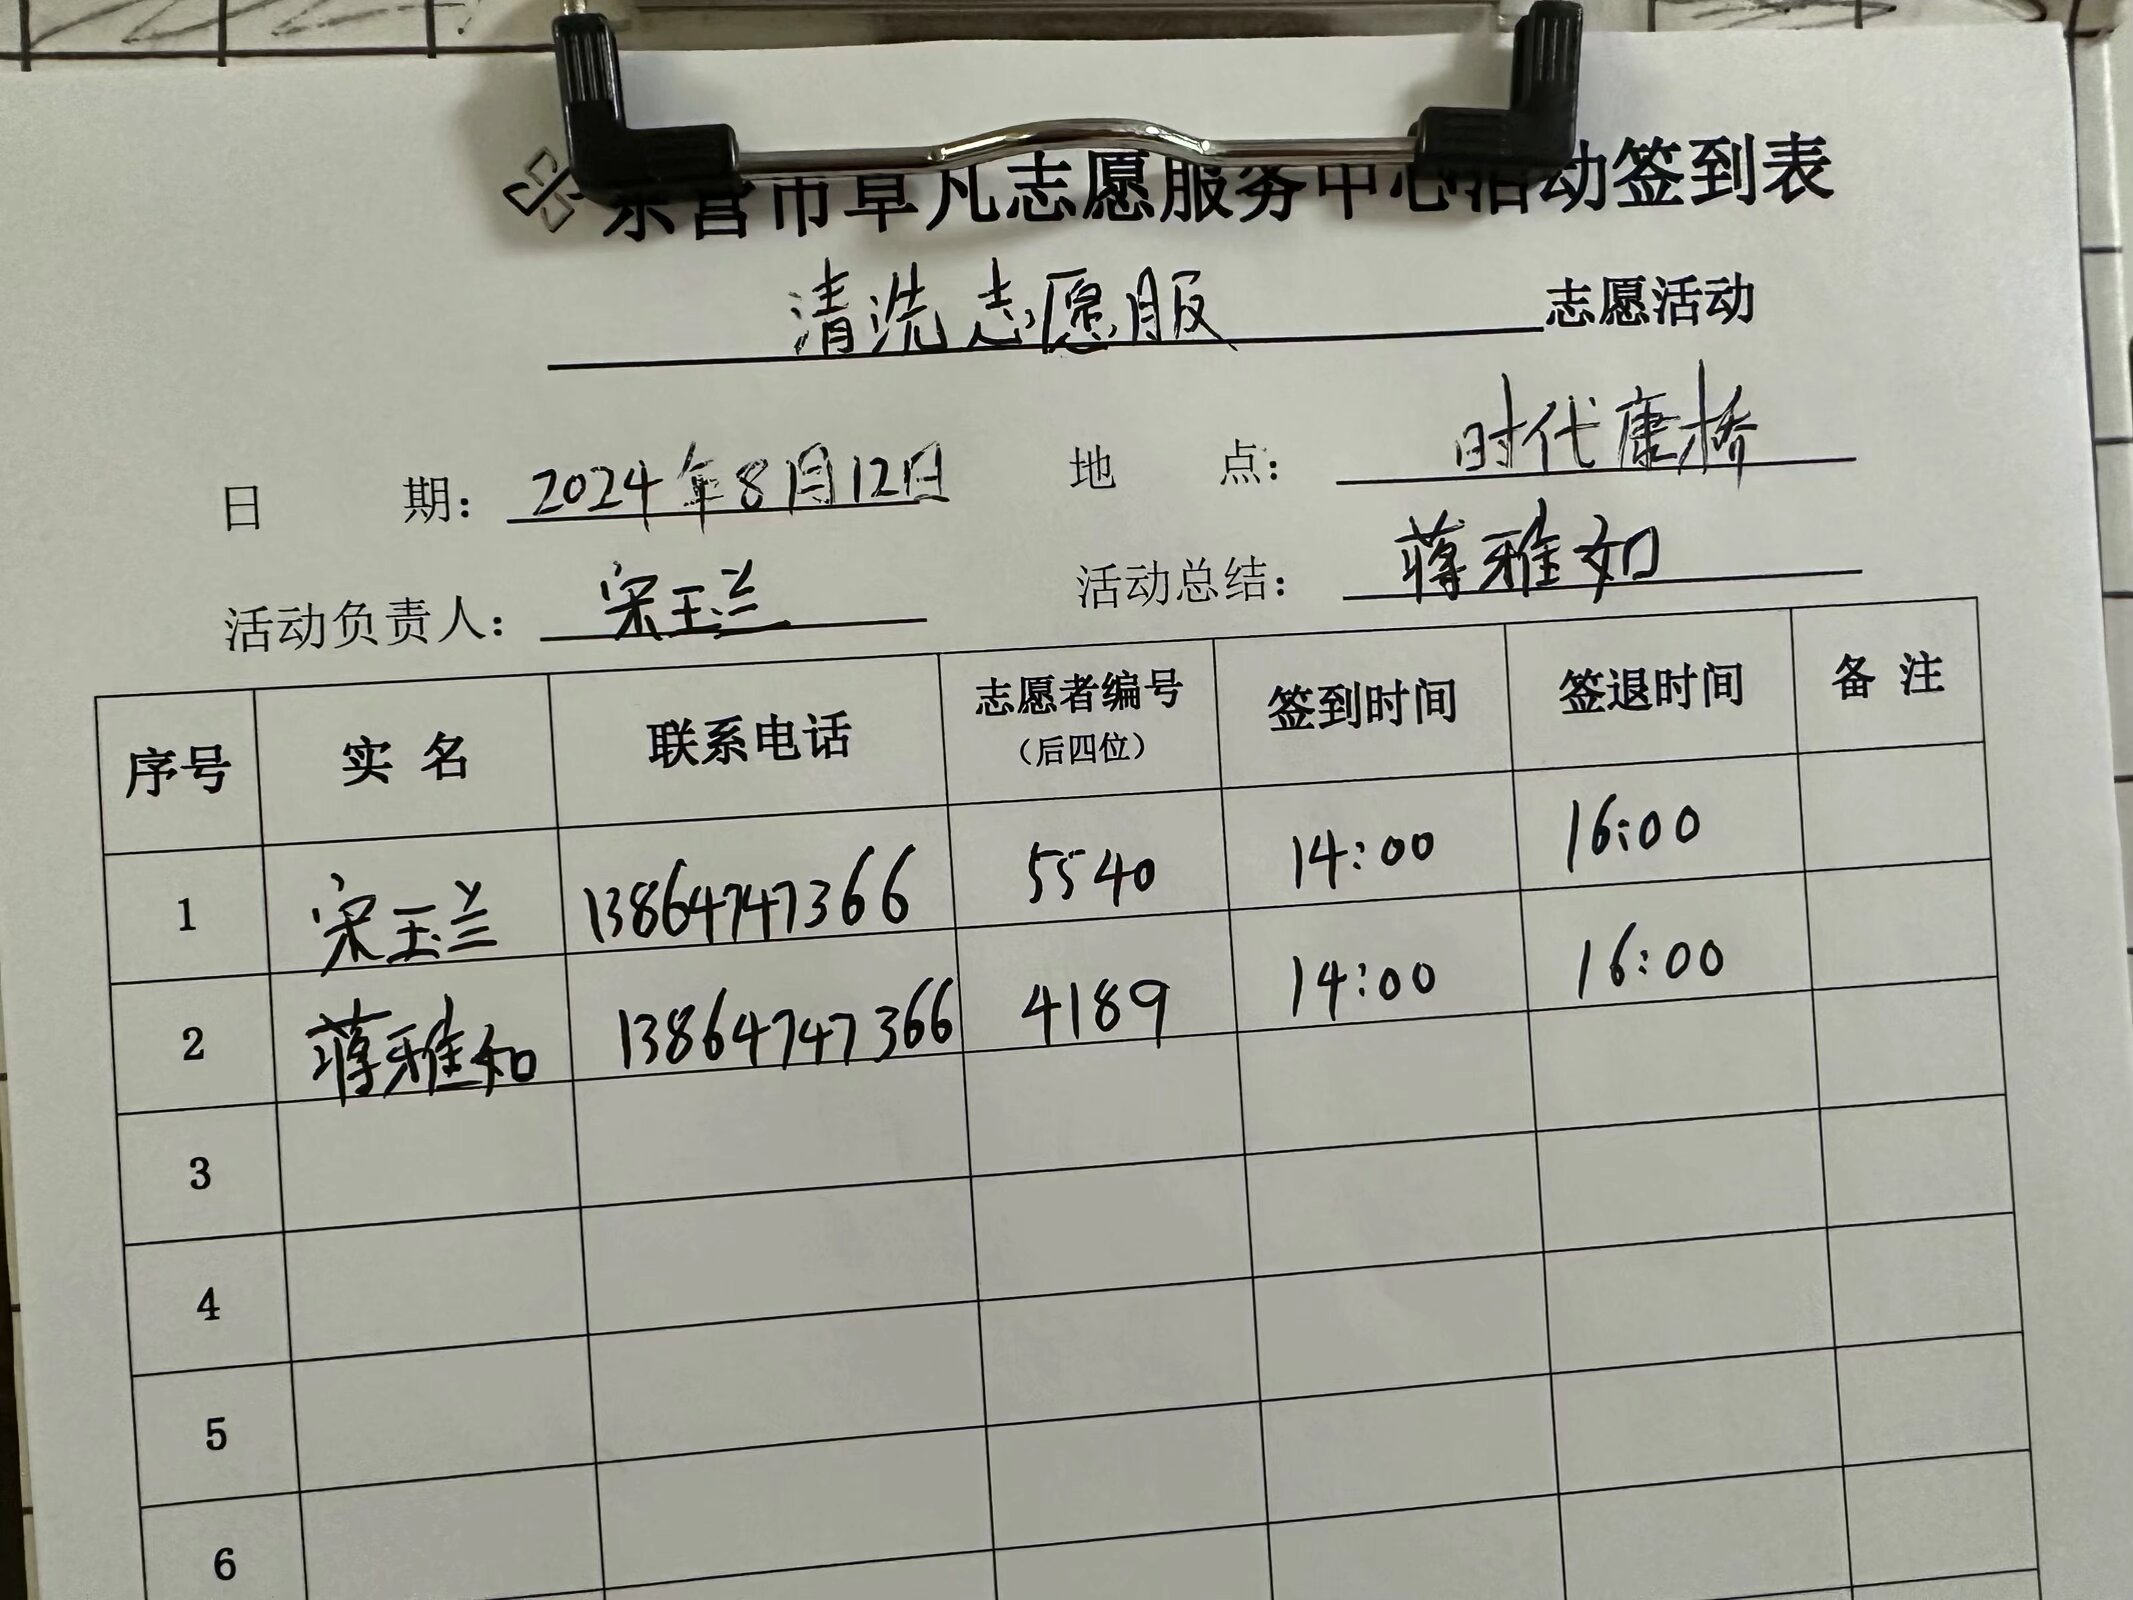 东营市草凡志愿服务中心活动签到表
清洗志愿服 志愿活动
日 期： 2024年8月12日 地 点： 时代康桥
活动负责人： 宋玉兰 活动总结： 蒋雅如
序号 实 名 联系电话 志愿者编号（后四位） 签到时间 签退时间 备 注
1 宋玉兰 13864747366 5540 14:00 16:00
2 蒋雅如 13864747366 4189 14:00 16:00
3
4
5
6